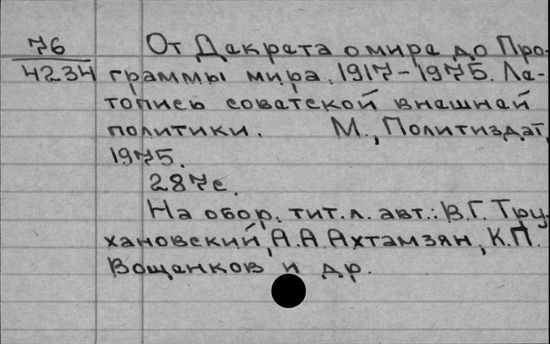 76 От Декрета о мире до Про-
4234 граммы мира. 1917-1975. Ле-
топись советской внешней
политики. М., Политиздат,
1975.
287с.
На обор. тит. л. авт.: В.Г. Тру-
хановский, А.А. Ахтамзян, К.П.
Вощенков и др.